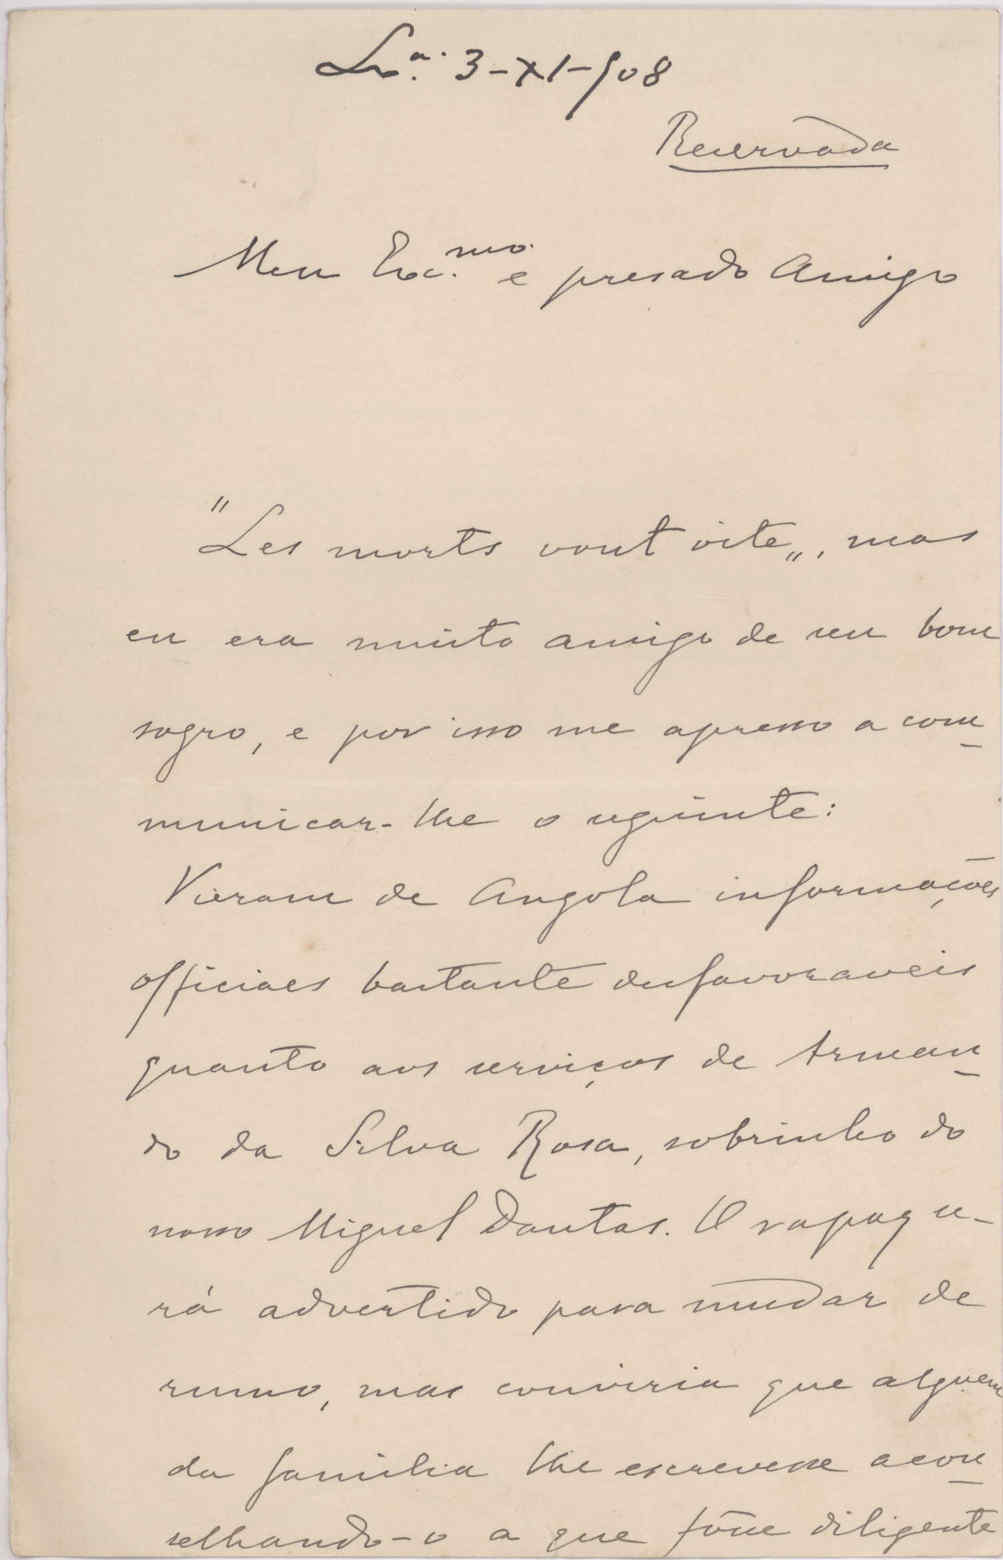 Lxa. 3-XI-908
Reservada
Meu Exc.mo e presado Amigo
"Les morts vont vite„, mas
eu era muito amigo de seu bom
sogro, e por isso me apresso a com
municar-lhe o seguinte:
Vieram de Angola informações
officiaes bastante desfavoraveis
quanto aos serviços de Arman
do da Silva Rosa, sobrinho do
nosso Miguel Dantas. O rapaz se-
rá advertido para mudar de
rumo, mas conviria que alguem
da familia lhe escrevesse acon
selhando-o a que fôsse diligente